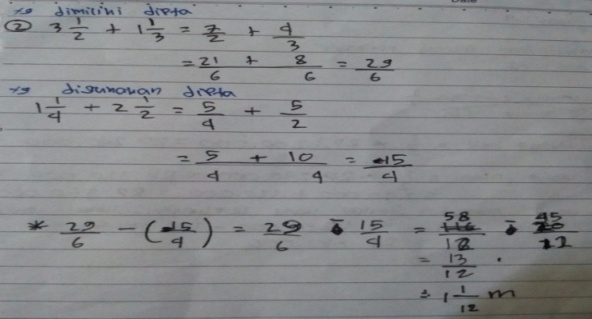 → dimiliki dipta
② 3 1/2 + 1 1/3 = 7/2 + 4/3
= 21/6 + 8/6 = 29/6
→ digunakan dipta
1 1/4 + 2 1/2 = 5/4 + 5/2
= 5/4 + 10/4 = 15/4
* 29/6 - (15/4) = 29/6 - 15/4 = 58/12 - 45/12
= 13/12 .
= 1 1/12 m